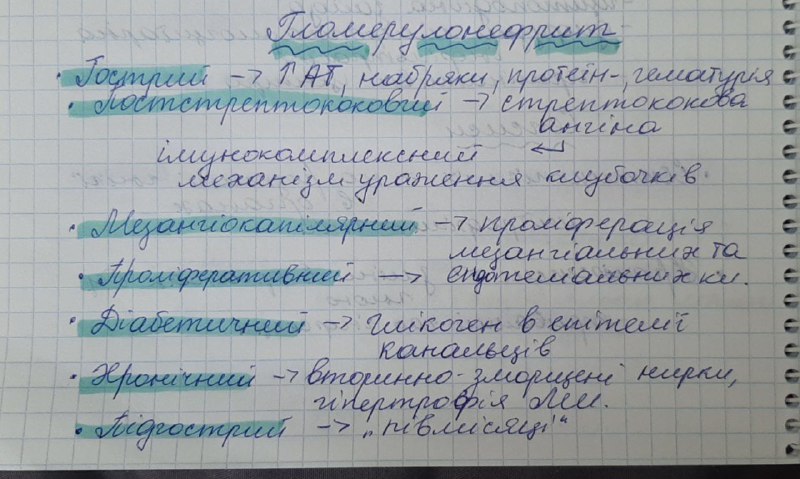 Гломерулонефрит
· Гострий → ↑АТ, набряки, протеїн-, гематурія
· Постстрептококовий → стрептококова
ангіна
імунокомплексний ↵
механізм ураження клубочків
· Мезангіокапілярний → проліферація
мезангіальних та
· Проліферативний → ендотеліальних кл.
· Діабетичний → глікоген в епітелії
канальців
· Хронічний → вторинно-зморщені нирки,
гіпертрофія ЛШ.
· Підгострий → „півмісяці“